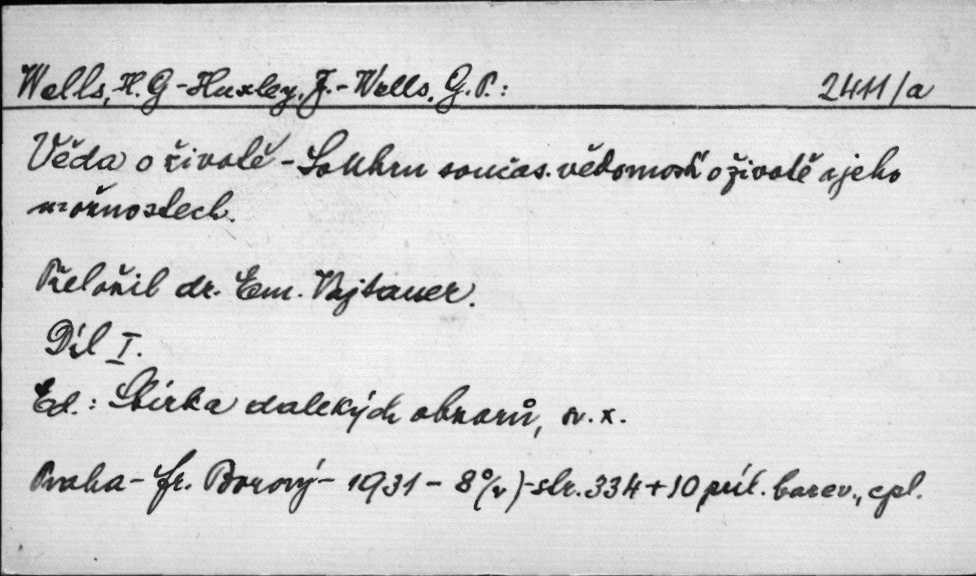 Wells, H. G - Huxley, J. - Wells, G. P.: 2411/a
Věda o životě - Souhrn součas. vědomostí o životě a jeho
možnostech.
Přeložil dr. Em. Vajtauer.
Díl I.
Ed.: Sbírka dalekých obzorů, sv. X.
Praha - Fr. Borový - 1931 - 8° (v) - str. 334 + 10 příl. barev., cpl.